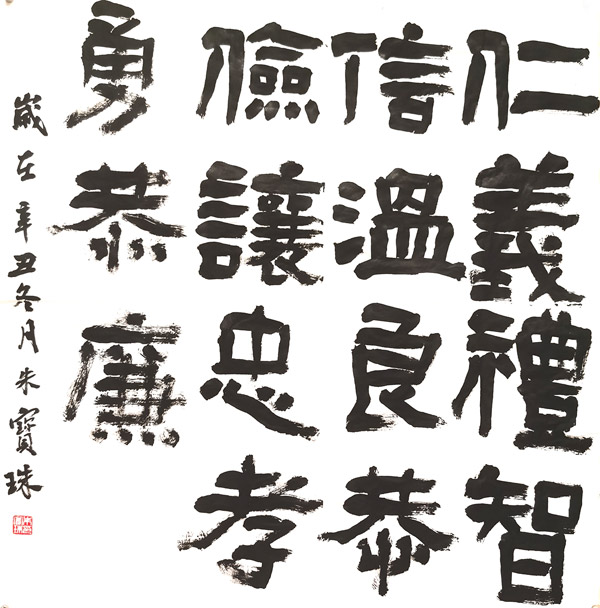 仁義禮智
信溫良恭
儉讓忠孝
勇恭廉
歲在辛丑冬月朱寶珠